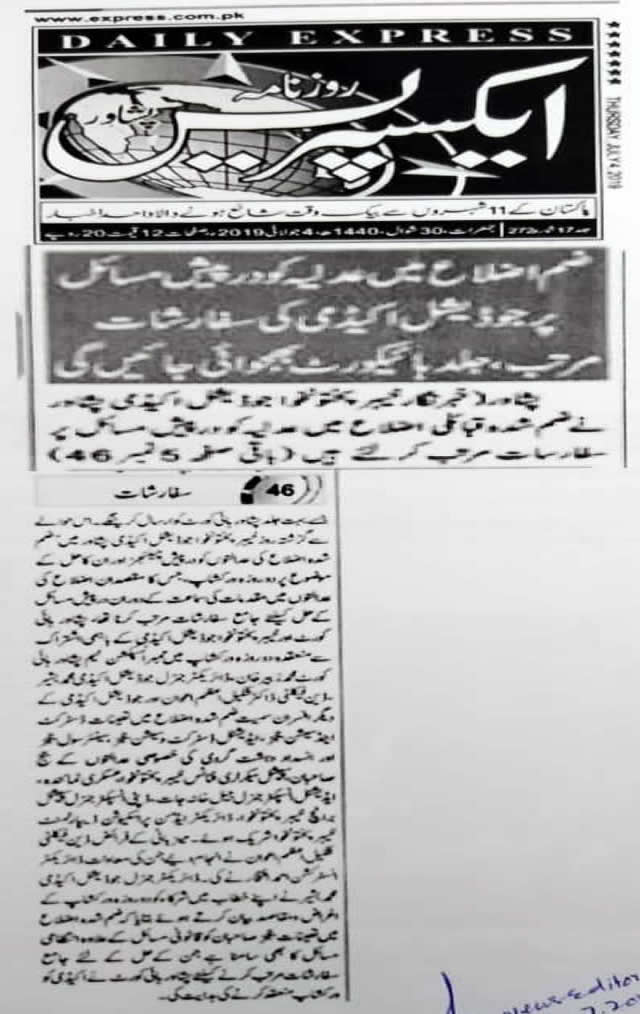 www.express.com.pk
DAILY EXPRESS
THURSDAY JULY 4 2019
روزنامہ
ایکسپریس
پشاور
پاکستان کے 11 شہروں سے بیک وقت شائع ہونے والا واحد اخبار
جلد 17 شمارہ 272 جمعرات، 30 شوال، 1440ھ، 4 جولائی 2019ء صفحات 12 قیمت 20 روپے
ضم اضلاع میں عدلیہ کو درپیش مسائل
پر جوڈیشل اکیڈمی کی سفارشات
مرتب، جلد ہائیکورٹ بھجوائی جائیں گی
پشاور (خبرنگار) خیبر پختونخوا جوڈیشل اکیڈمی پشاور
نے ضم شدہ قبائلی اضلاع میں عدلیہ کو درپیش مسائل پر
سفارسات مرتب کر لئے ہیں (باقی صفحہ 5 نمبر 46)
46 سفارشات
جسے بہت جلد پشاور ہائی کورٹ کو ارسال کرینگے۔ اس حوالے
سے گزشتہ روز خیبر پختونخوا جوڈیشل اکیڈمی پشاور میں ضم
شدہ اضلاع کی عدالتوں کو درپیش چیلنجز اور ان کا حل کے
موضوع پر دو روزہ ورکشاپ، جس کا مقصد ان اضلاع کی
عدالتوں میں مقدمات کی سماعت کے دوران درپیش مسائل
کے حل کیلئے جامع سفارشات مرتب کرنا تھا، پشاور ہائی
کورٹ اور خیبر پختونخوا جوڈیشل اکیڈمی کے باہمی اشتراک
سے منعقدہ دو روزہ ورکشاپ میں ممبر انسپکشن ٹیم پشاور ہائی
کورٹ محمد زبیر خان، ڈائریکٹر جنرل جوڈیشل اکیڈمی محمد بشیر
، ڈین فیکلٹی ڈاکٹر شکیل اعظم اعوان اور جوڈیشل اکیڈمی کے
دیگر افسران سمیت ضم شدہ اضلاع میں تعینات ڈسٹرکٹ
اینڈ سیشن ججز، ایڈیشنل ڈسٹرکٹ و سیشن ججز، سینئر سول ججز
اور انسداد دہشت گردی کی خصوصی عدالتوں کے جج
صاحبان، سپیشل سیکرٹری فنانس خیبر پختونخوا، عسکری نمائندہ،
ایڈیشنل انسپکٹر جنرل جیل خانہ جات، ڈپٹی انسپکٹر جنرل سپیشل
برانچ خیبر پختونخوا، ڈائریکٹر ایڈمن پراسیکیوشن ڈیپارٹمنٹ
خیبر پختونخوا شریک ہوئے۔ میزبانی کے فرائض ڈین فیکلٹی
شکیل اعظم اعوان نے انجام دیے جن کی معاونت ڈائریکٹر
انسٹرکشن احمد افتخار نے کی۔ ڈائریکٹر جنرل جوڈیشل اکیڈمی
محمد بشیر نے اپنے خطاب میں شرکاء کو دو روزہ ورکشاپ کے
اغراض و مقاصد بیان کرتے ہوئے بتایا کہ ضم شدہ اضلاع
میں تعینات ججز صاحبان کو قانونی مسائل کے علاوہ انتظامی
مسائل کا بھی سامنا ہے جن کے حل کے لئے جامع
سفارشات مرتب کرنے کیلئے پشاور ہائی کورٹ نے اکیڈمی کو
ورکشاپ منعقد کرنے کی ہدایت کی۔
News-Editor